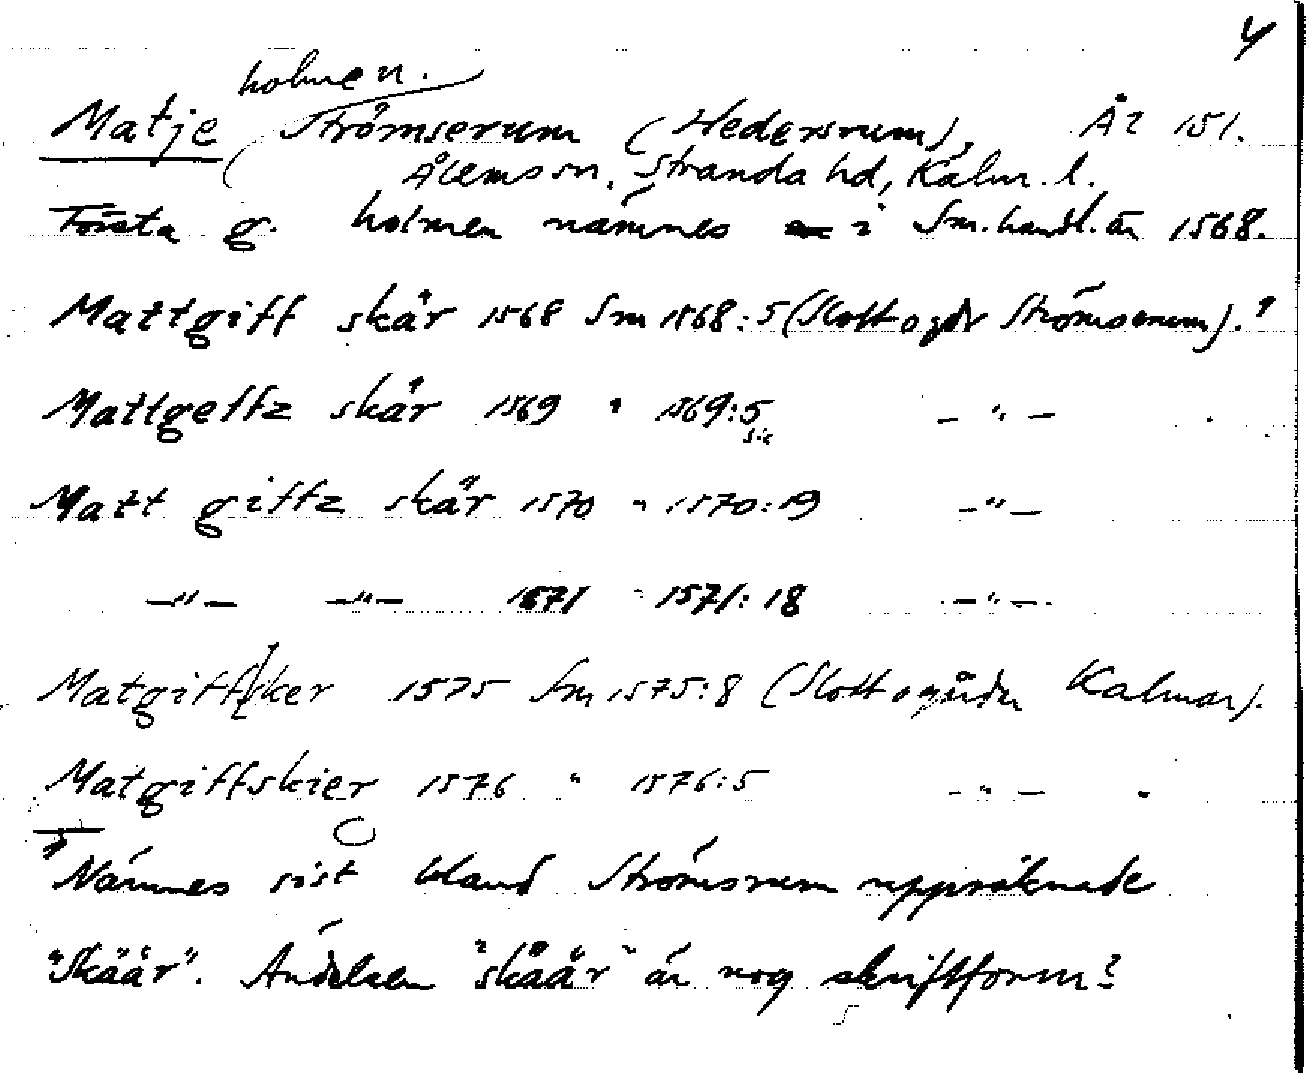 4
holmen.
Matje Strömserum (Hedersrum), År 151.
Ålems sn, Stranda hd, Kalm. l.
Första g. holmen nämnes i Sm. handl. är 1568.
Mattgiff skär 1568 Sm 1568:5 (Slottsgdr Strömserum).¹
Mattgeffz skär 1569 " 1569:5 -"-
sic
Matt giffz skär 1570 " 1570:19 -"-
-"- -"- 1571 " 1571:18 -"-
Matgiffsker 1575 Sm 1575:8 (Slottsgårdn Kalmar).
Matgiffskier 1576 " 1576:5 -"-
Nämnes sist bland Strömsrum uppräknade
"Skäär". Ändelsen "skäär" är nog skriftform?